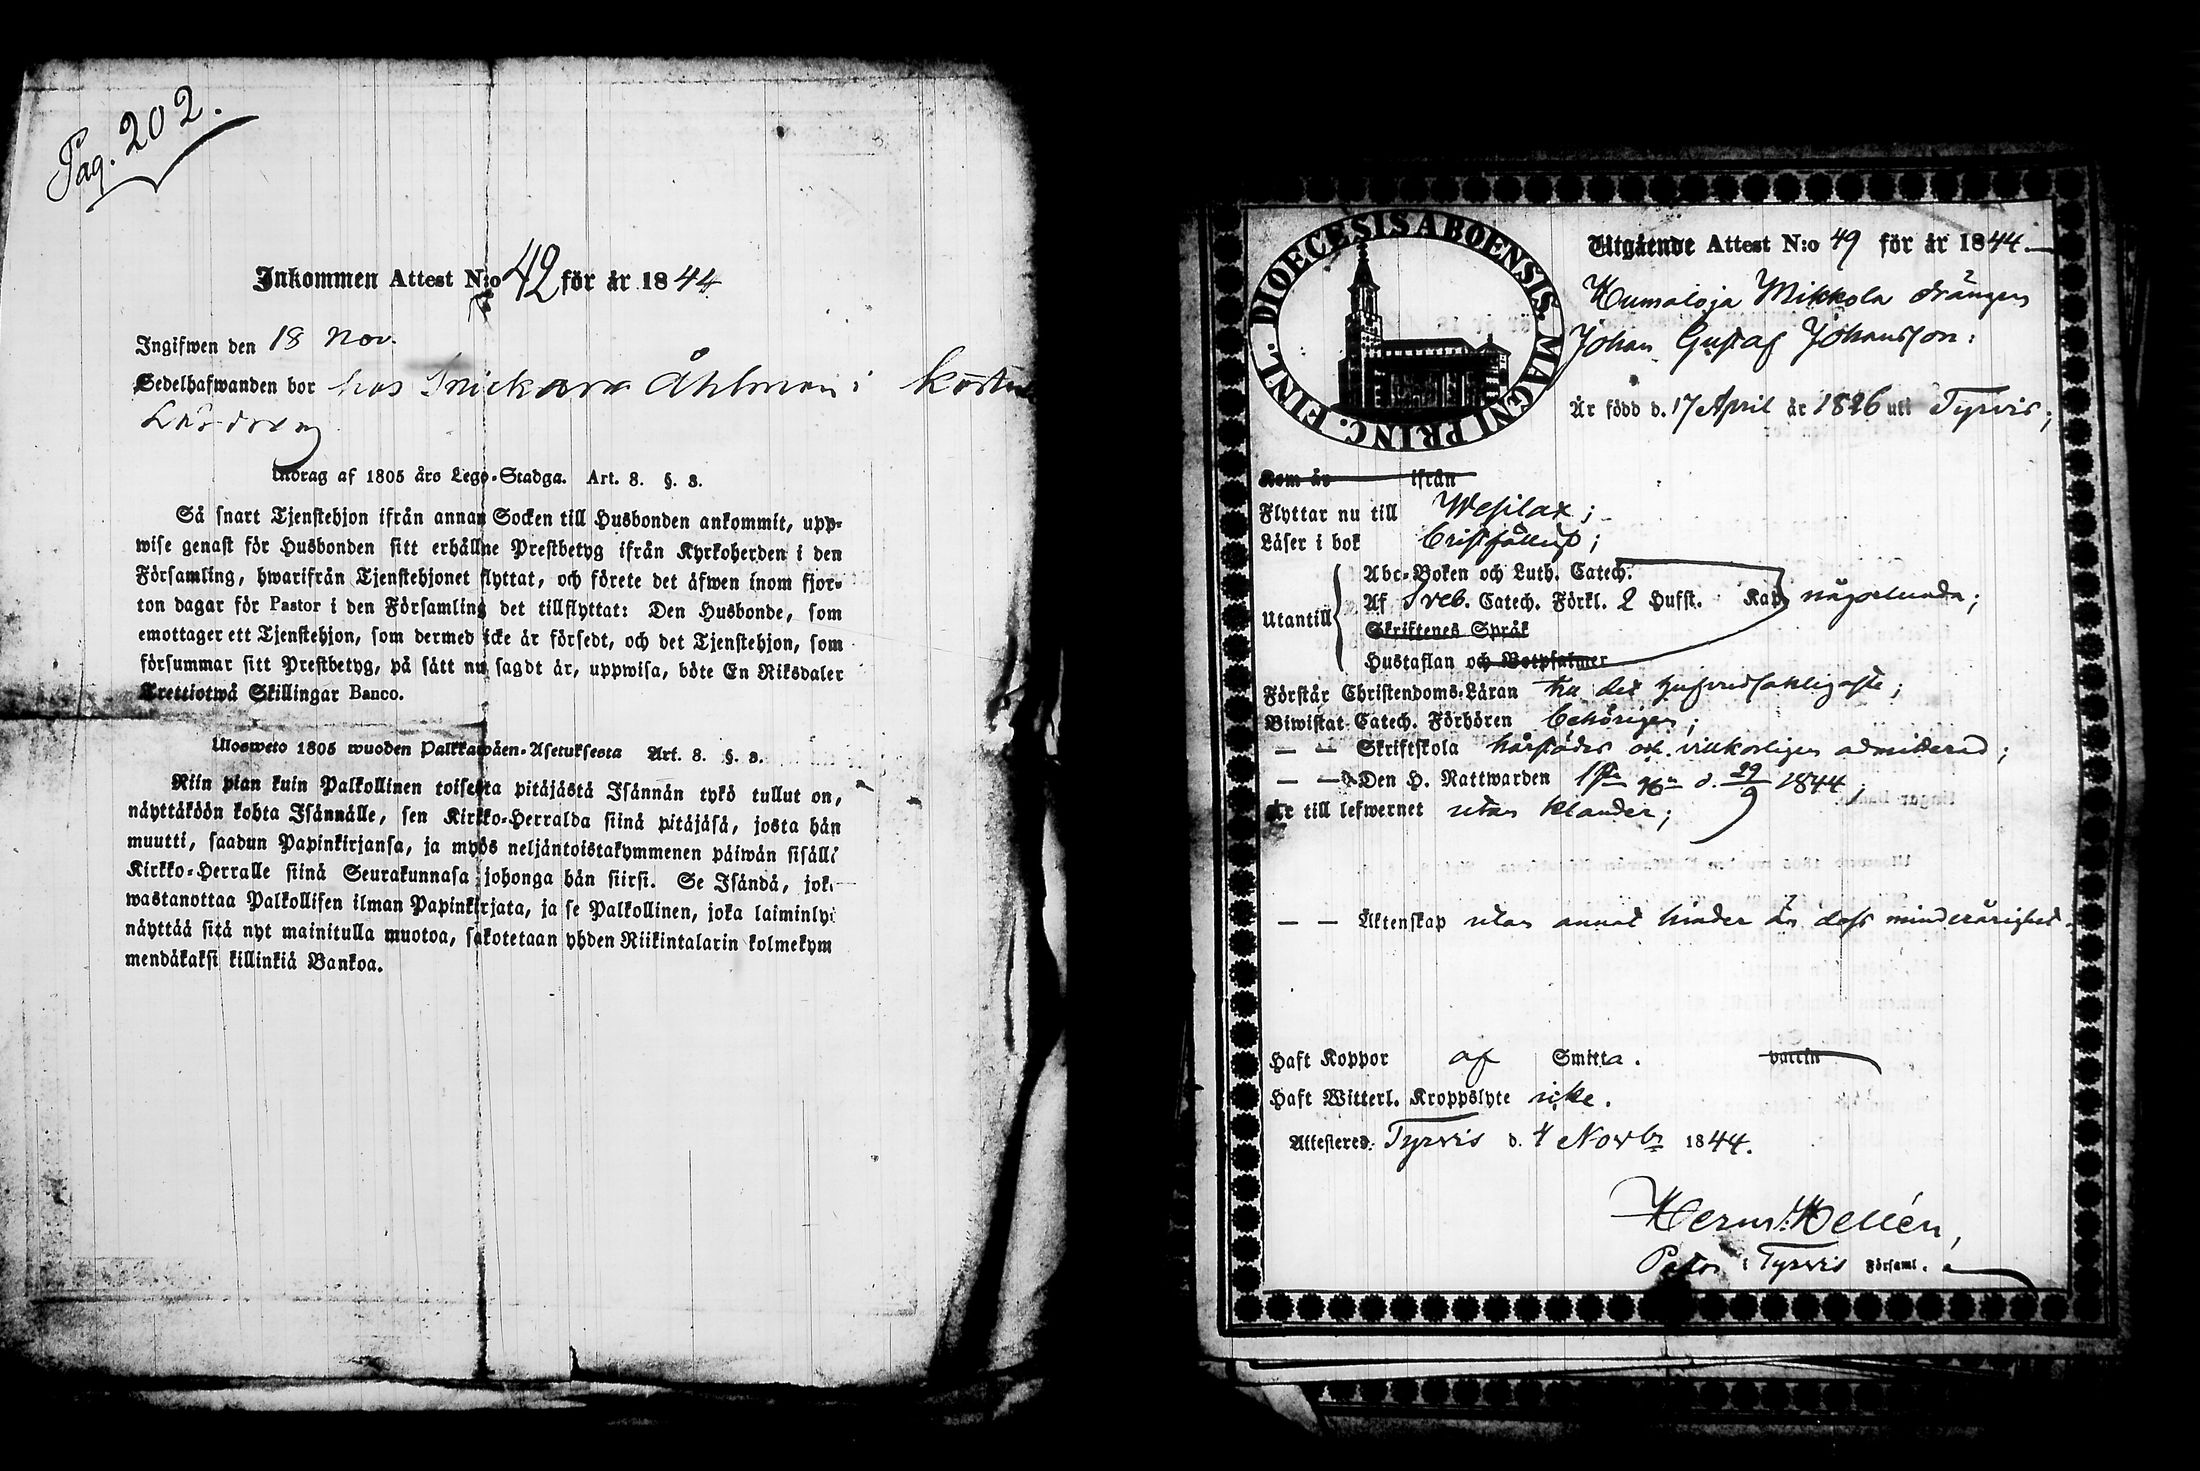 Pag. 202.
Inkommen Attest N:o 42 för år 1844
Ingifwen den 18 Nov.
Sedelhafwanden bor hos Snickare Åhlman i
Lärdräng
Utdrag af 1805 års Lego-Stadga. Art. 8. §. 3.
Så snart Tjenstehjon ifrån annan Socken till Husbonden ankommit, upp-
wise genast för Husbonden sitt erhållne Prestbetyg ifrån Kyrkoherden i den
Församling, hwarifrån Tjenstehjonet flyttat, och förete det äfwen inom fjor-
ton dagar för Pastor i den Församling det tillflyttat: Den Husbonde, som
emottager ett Tjenstehjon, som dermed icke är försedt, och det Tjenstehjon, som
försummar sitt Prestbetyg, på sätt nu sagdt är, uppwisa, böte En Riksdaler
Trettiotwå Skillingar Banco.
Ulosweto 1805 wuoden Palkkawäen-Asetuksesta Art. 8. §. 3.
Niin pian kuin Palkollinen toisesta pitäjästä Isännän tykö tullut on,
näyttäköön kohta Isännälle, sen Kirkko-Herralda siinä pitäjäsä, josta hän
muutti, saadun Papinkirjansa, ja myös neljäntoistakymmenen päiwän sisällä
Kirkko-Herralle siinä Seurakunnasa johonga hän siirsi. Se Isändä, joka
wastanottaa Palkollisen ilman Papinkirjata, ja se Palkollinen, joka laiminlyö
näyttää sitä nyt mainitulla muotoa, sakotetaan yhden Riikintalarin kolmekym
mendäkaksi killinkiä Bankoa.
DIOECESIS ABOENSIS. MAGNI PRINC. FINL.
Utgående Attest N:o 49 för år 1844.
Humaloja Mikkola drängen
Johan Gustaf Johansson:
Är född d. 17 April år 1826 uti Tyrvis;
Kom år ifrån
Flyttar nu till Wesilax;
Läser i bok
Abc-Boken och Luth. Catech.
Utantill Af Sveb. Catech. Förkl. 2 Hufst. Kap. någorlunda;
Skriftenes Språk
Hustaflan och Botpsalmer
Förstår Christendoms-Läran till det hufvudsakligaste;
Biwistat Catech. Förhören behörigen;
— — Skriftskola härstädes och villkorligen admitterad;
— — Den H. Nattwarden 1sta gn d. 29/9 1844;
Är till lefwernet utan klander;
— — Äktenskap utan annat hinder än dess minderårighet.
Haft Koppor af Smitta. vaccin
Haft Witterl. Kroppslyte icke.
Attesteres. Tyrvis d. 4 Novbr 1844.
Herm: Hellén,
Pastor i Tyrvis Församl.